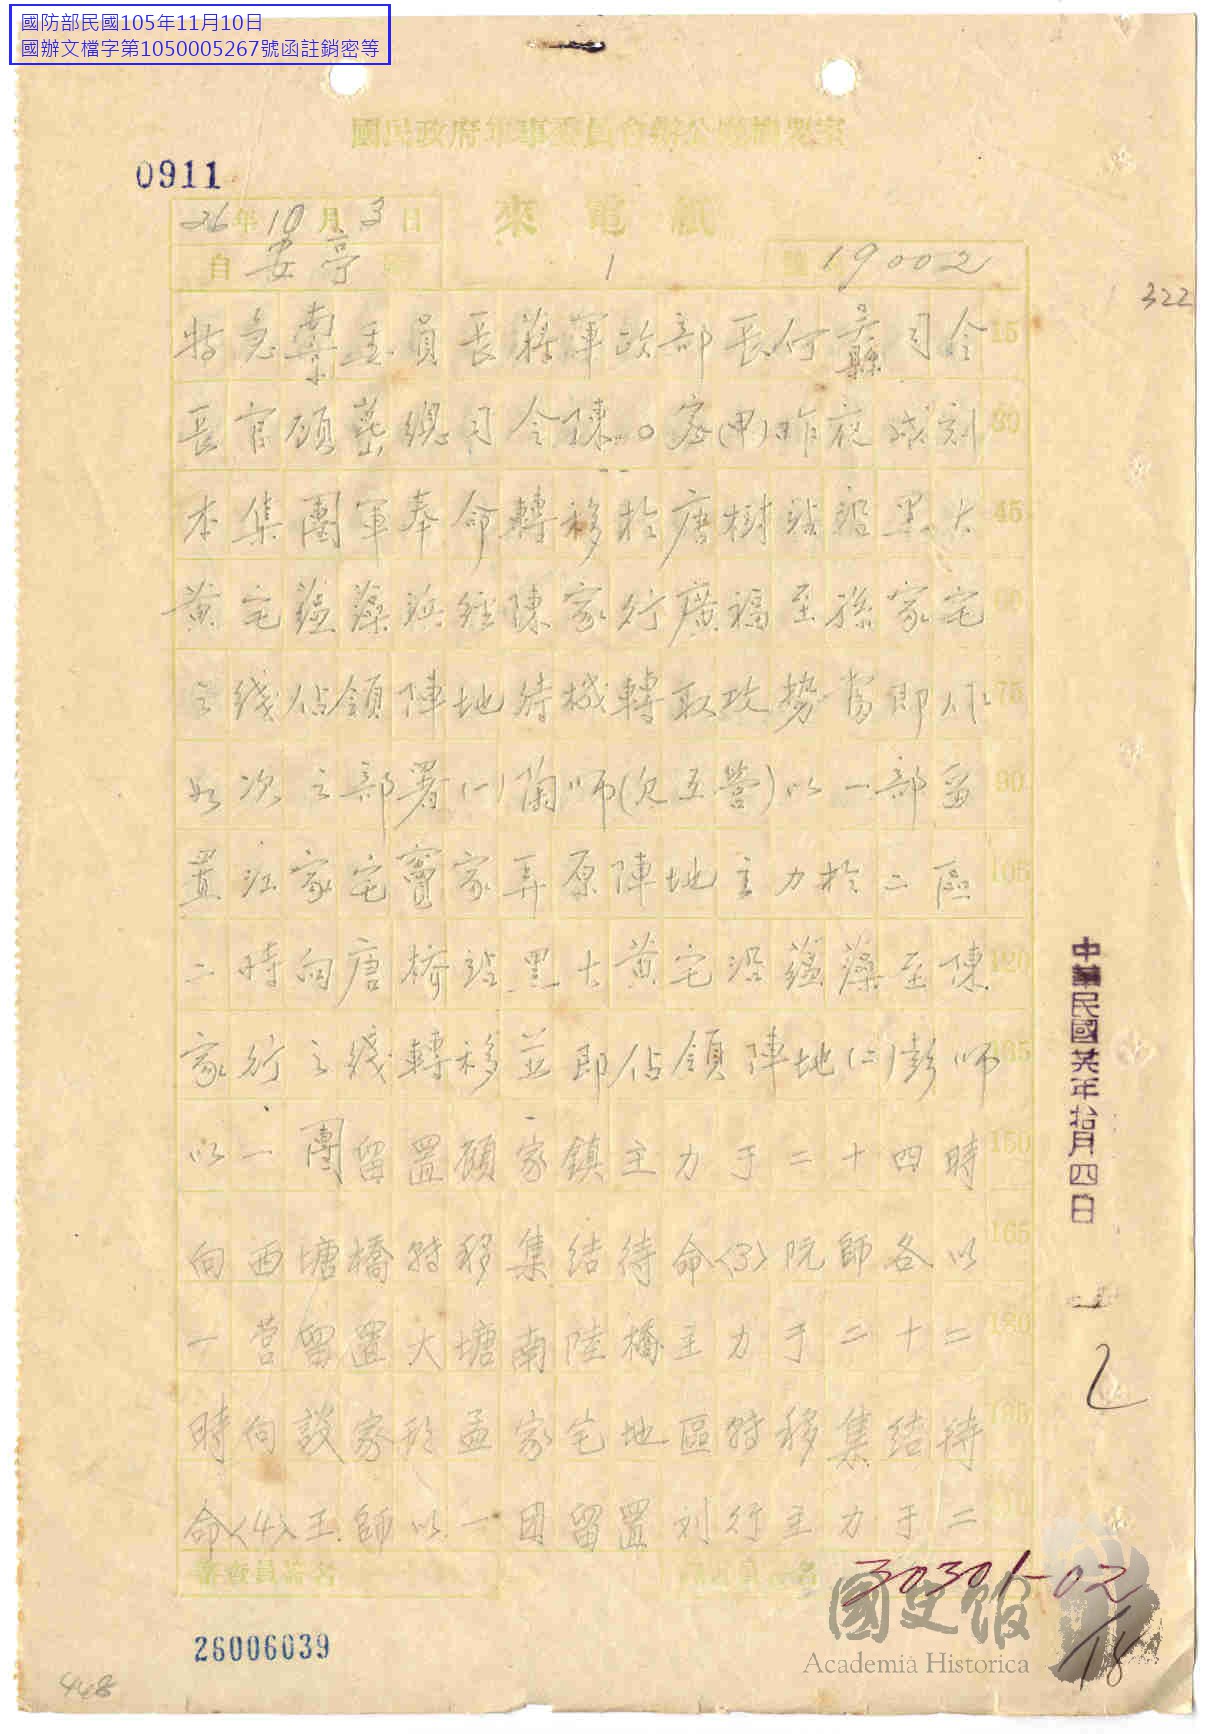 國防部民國105年11月10日
國辦文檔字第1050005267號函註銷密等
國民政府軍事委員會辦公廳機要室
0911
來電紙
26年10月3日
自安亭
1
號 19002
322
特急南京委員長蔣軍政部長何吳縣司令 15
長官顧 總司令陳。密(申)昨夜戌刻 30
本集團軍奉命轉移於唐樹站沿黑大 45
黃宅蘊藻浜經陳家行廣福至孫家宅 60
之綫佔領陣地待機轉取攻勢當即 75
如次之部署(一)蘭師(欠五營)以一部留 90
置江家宅竇家弄原陣地主力於二區 105
二時向唐橋站黑大黃宅沿蘊藻至陳 120
家行之綫轉移並即佔領陣地(二)彭師 135
以一團留置顧家鎮主力于二十四時 150
向西塘橋轉移集結待命〈3〉阮師各以 165
一营留置大塘南陸橋主力于二十二 180
時向談家 孟家宅地區轉移集結待 195
命〈4〉王師以一团留置刘行主力于二
審查員簽名
中華民國廿六年拾月四日
乙
30301-02
18
國史館
Academia Historica
26006039
448